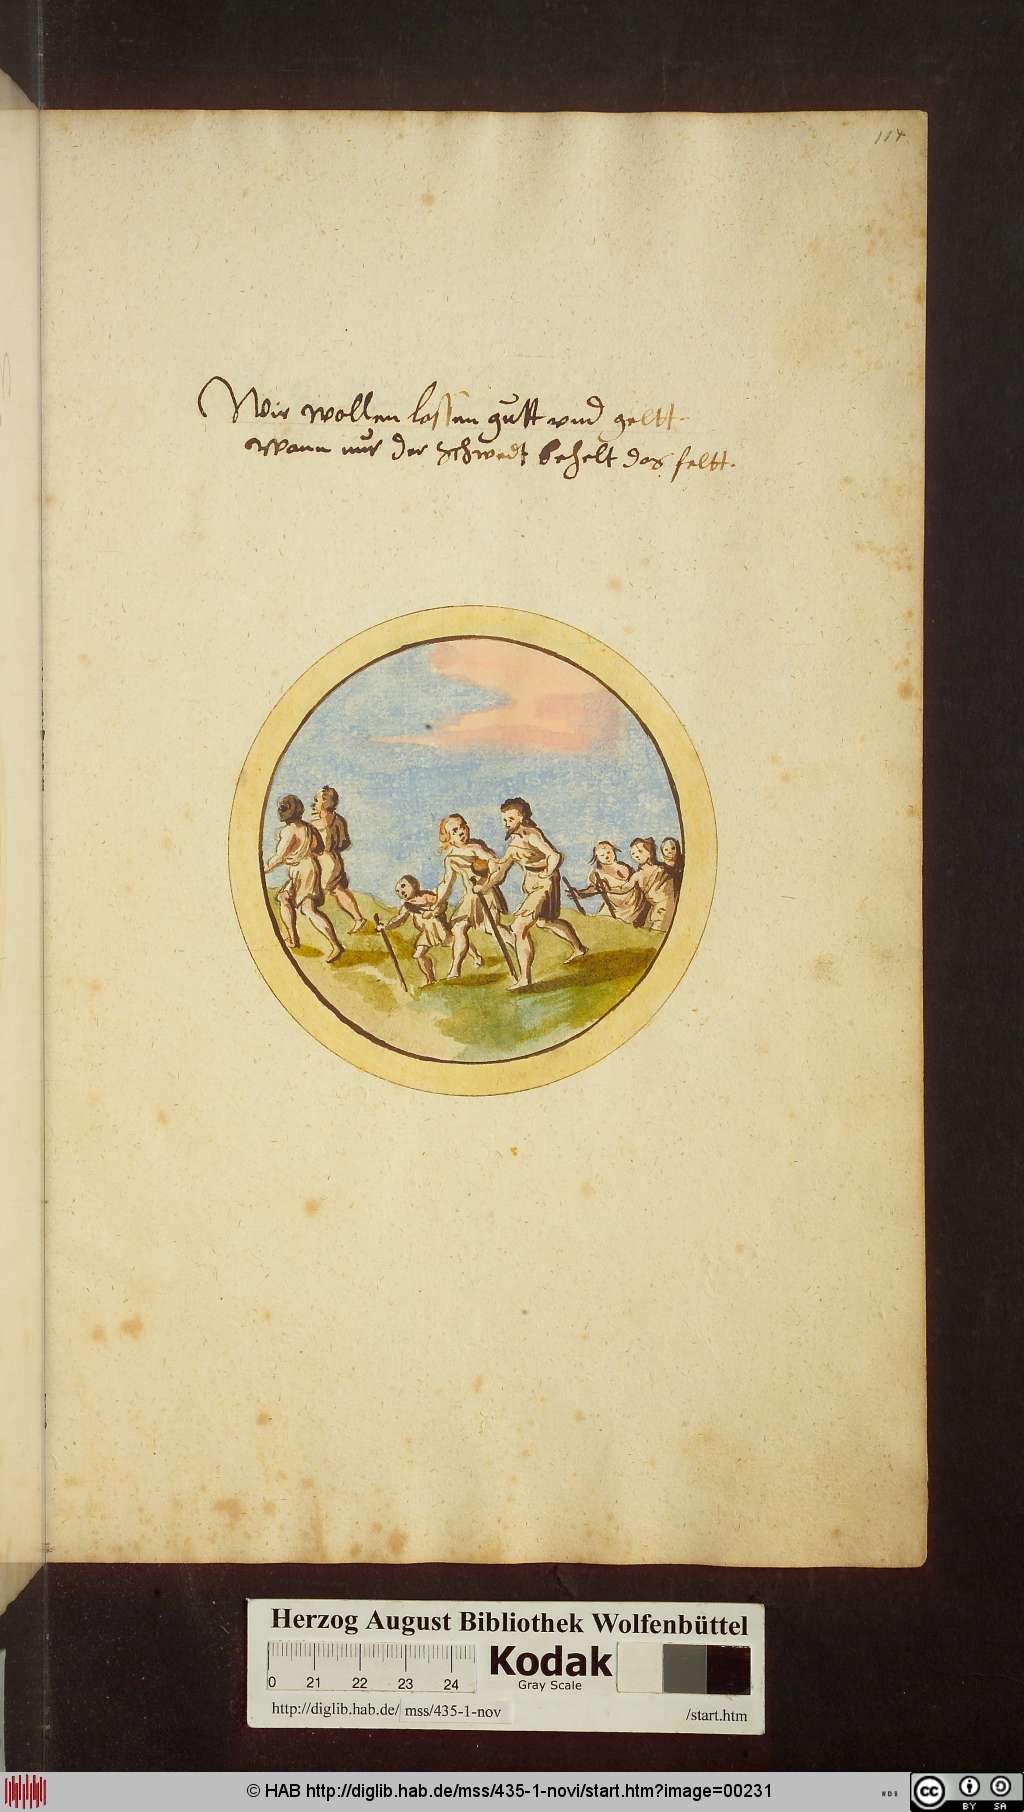 114
Wir wollen lassen gutt vnd geltt.
Wann nur der Schwedt behelt das feltt.
Herzog August Bibliothek Wolfenbüttel
0 21 22 23 24
Kodak
Gray Scale
http://diglib.hab.de/ mss/435-1-nov /start.htm
© HAB http://diglib.hab.de/mss/435-1-novi/start.htm?image=00231
WDB
cc BY SA